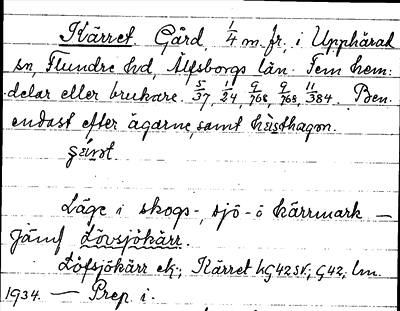 Kärret. Gård, 1/4 m. fr., i Upphärad
sn, Flundre hd, Älfsborgs län. Fem hem-
delar eller brukare. 5/37, 5/24, 9/768, 9/768, 11/384. Ben.
endast efter ägarne, samt hästhagen.
Läge i skogs-, sjö- o kärrmark —
Jämf Lövsjökärr.
Löfsjökärr ek; Kärret hG42SV; G42; lm.
1934. — Prep i.